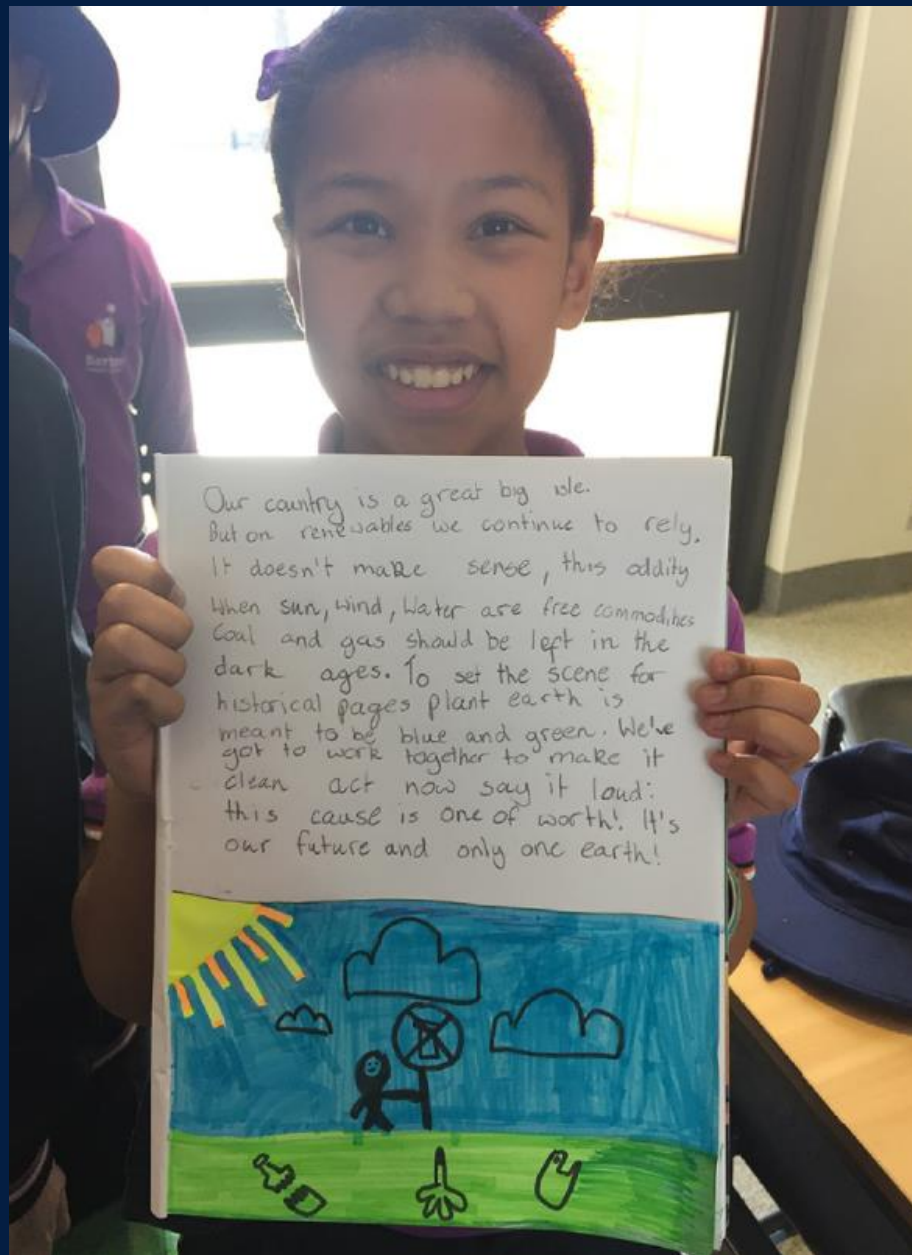 Our country is a great big isle.
But on renewables we continue to rely.
It doesn't make sense, this oddity
When sun, wind, Water are free commodities
Coal and gas should be left in the
dark ages. To set the scene for
historical pages plant earth is
meant to be blue and green. We've
got to work together to make it
clean act now say it loud:
this cause is one of worth! It's
our future and only one earth!